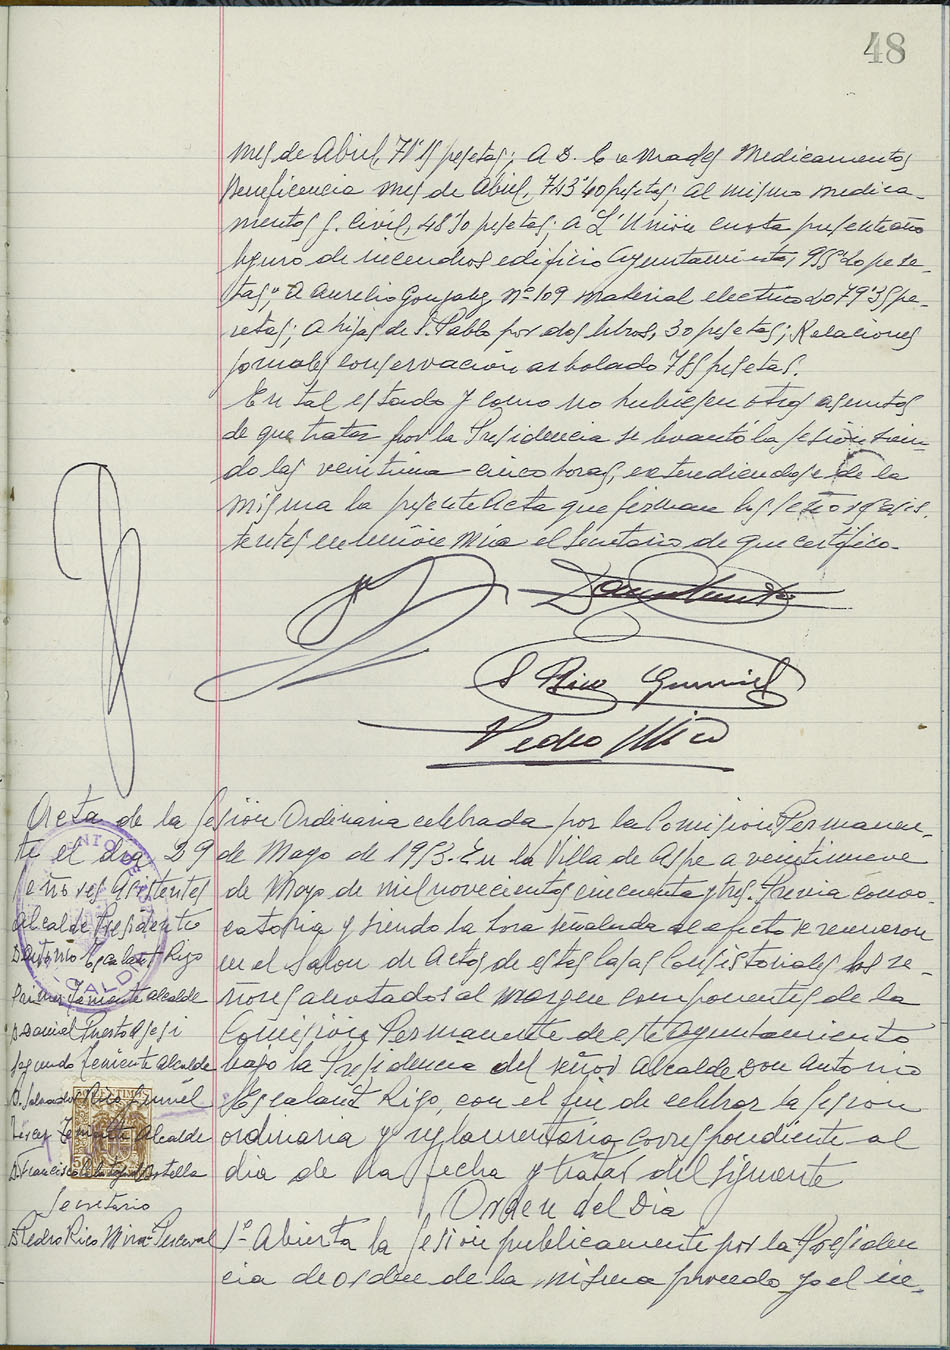 48
mes de Abril, 71'15 pesetas; A D. C Medicamentos
Beneficencia mes de Abril, 743'40 pesetas; al mismo medica-
mentos g. civil, 48'30 pesetas; a L'Unión cuota presente año
seguro de incendios edificio Ayuntamiento, 955'20 pese-
tas; A Aurelio Gonzalez, Nº 109 material electrico 2079'35 pe-
setas; a hijas de S. Pablo por dos libros, 30 pesetas; Relaciones
jornales conservación arbolado 785 pesetas.
En tal estado y como no hubiesen otros asuntos
de que tratar por la Presidencia se levantó la sesión sien-
do las veintiuna cinco horas, extendiendose de la
misma la presente Acta que firman los señores asis-
tentes en unión mía el Secretario de que certifico.
S Rico Gumiel
Pedro Mira
Acta de la Sesión Ordinaria celebrada por la Comision Permanen-
te el dia 29 de Mayo de 1953. En la Villa de Aspe a veintinueve
Señores Asistentes
Alcalde Presidente
D Antonio Escalant Rigo
Primer Teniente Alcalde
D. Daniel Puerto Asesi
Segundo Teniente Alcalde
D. Salvador Rico Gumiel
Tercer Teniente Alcalde
D. Francisco Botella
Secretario
D Pedro Rico Mira-Perceval
de Mayo de mil novecientos cincuenta y tres. Previa convo-
catoria y siendo la hora señalada al efecto se reunieron
en el Salon de Actos de estas Casas Consistoriales los se-
ñores anotados al margen componentes de la
Comisión Permanente de este Ayuntamiento
bajo la Presidencia del señor Alcalde Don Antonio
Escalant Rigo, con el fin de celebrar la sesion
ordinaria y reglamentaria correspondiente al
dia de la fecha y tratar del siguiente
Orden del Dia
1º Abierta la Sesión publicamente por la Presiden
cia de orden de la misma procedo yo el in-